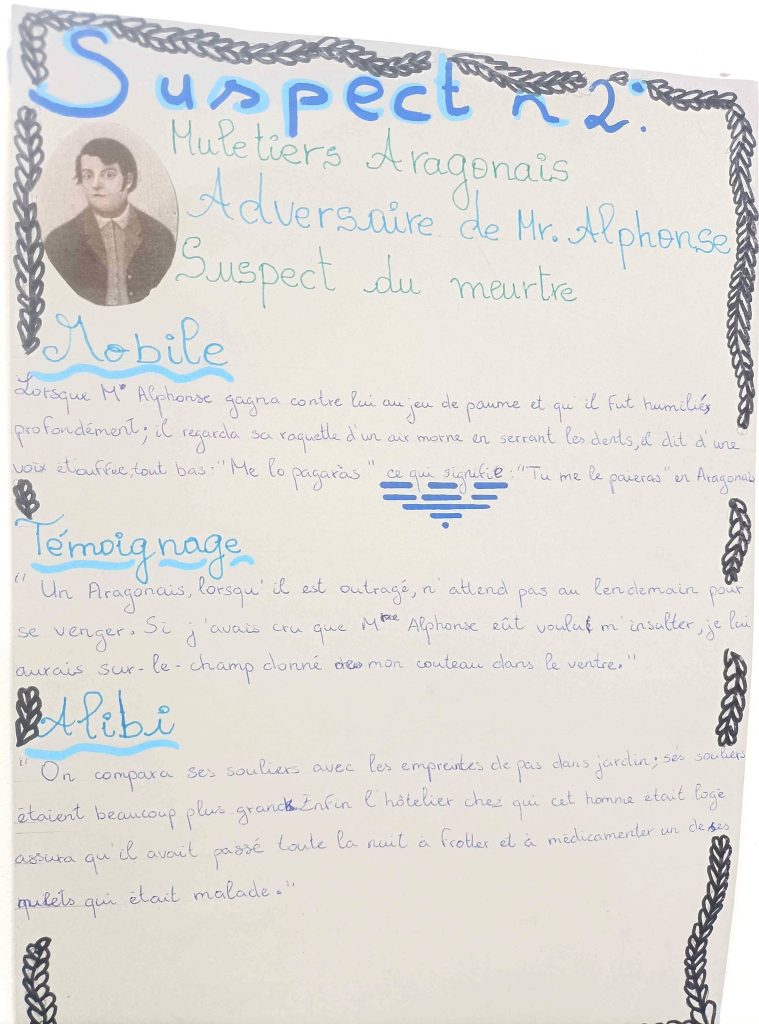 Suspect n°2:
Muletiers Aragonais
Adversaire de Mr. Alphonse
Suspect du meurtre
Mobile
Lorsque Mr Alphonse gagna contre lui au jeu de paume et qu'il fut humiliés
profondément; il regarda sa raquette d'un air morne en serrant les dents, il dit d'une
voix étouffée, tout bas: "Me lo pagaràs" ce qui signifie: "Tu me le paieras" en Aragonais
Témoignage
"Un Aragonais, lorsqu'il est outragé, n'attend pas au lendemain pour
se venger. Si j'avais cru que Alphonse eût voulu m'insulter, je lui
aurais sur-le-champ donné mon couteau dans le ventre."
Alibi
"On compara ses souliers avec les empreintes de pas dans jardin; sés souliers
étaient beaucoup plus grands. Enfin l'hôtelier chez qui cet homme était logé
assura qu'il avait passé toute la nuit à frotter et à médicamenter un de ses
mulets qui était malade."